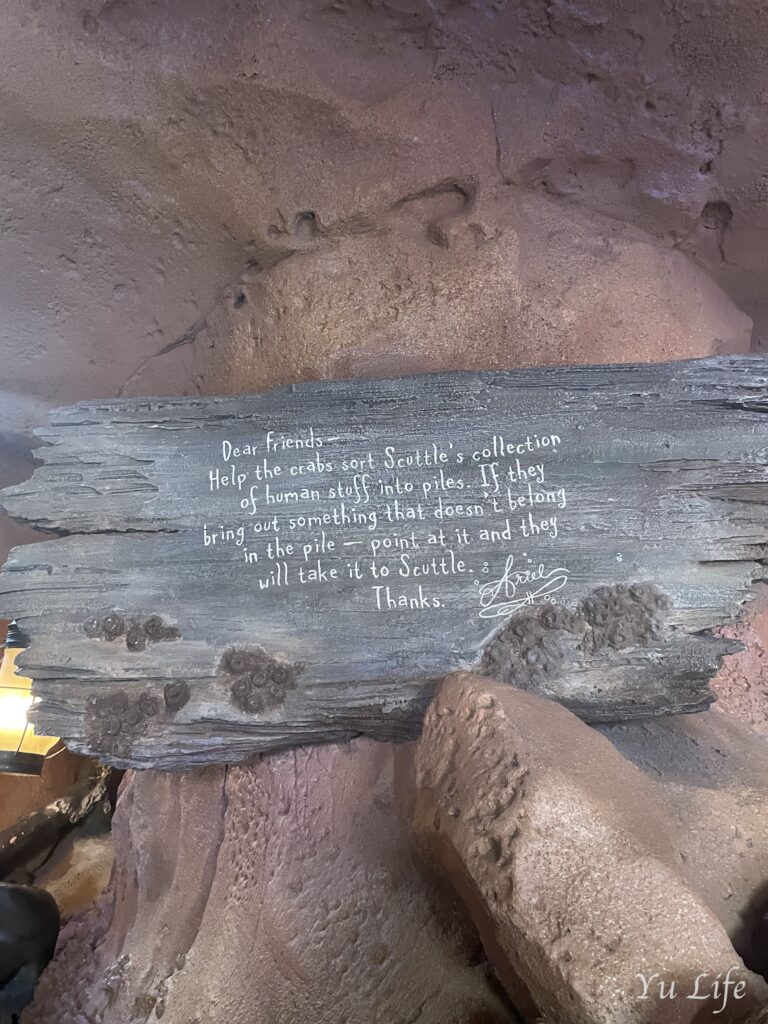 Dear Friends—
Help the crabs sort Scuttle's collection
of human stuff into piles. If they
bring out something that doesn't belong
in the pile — point at it and they
will take it to Scuttle.
Thanks. Ariel
Yu Life